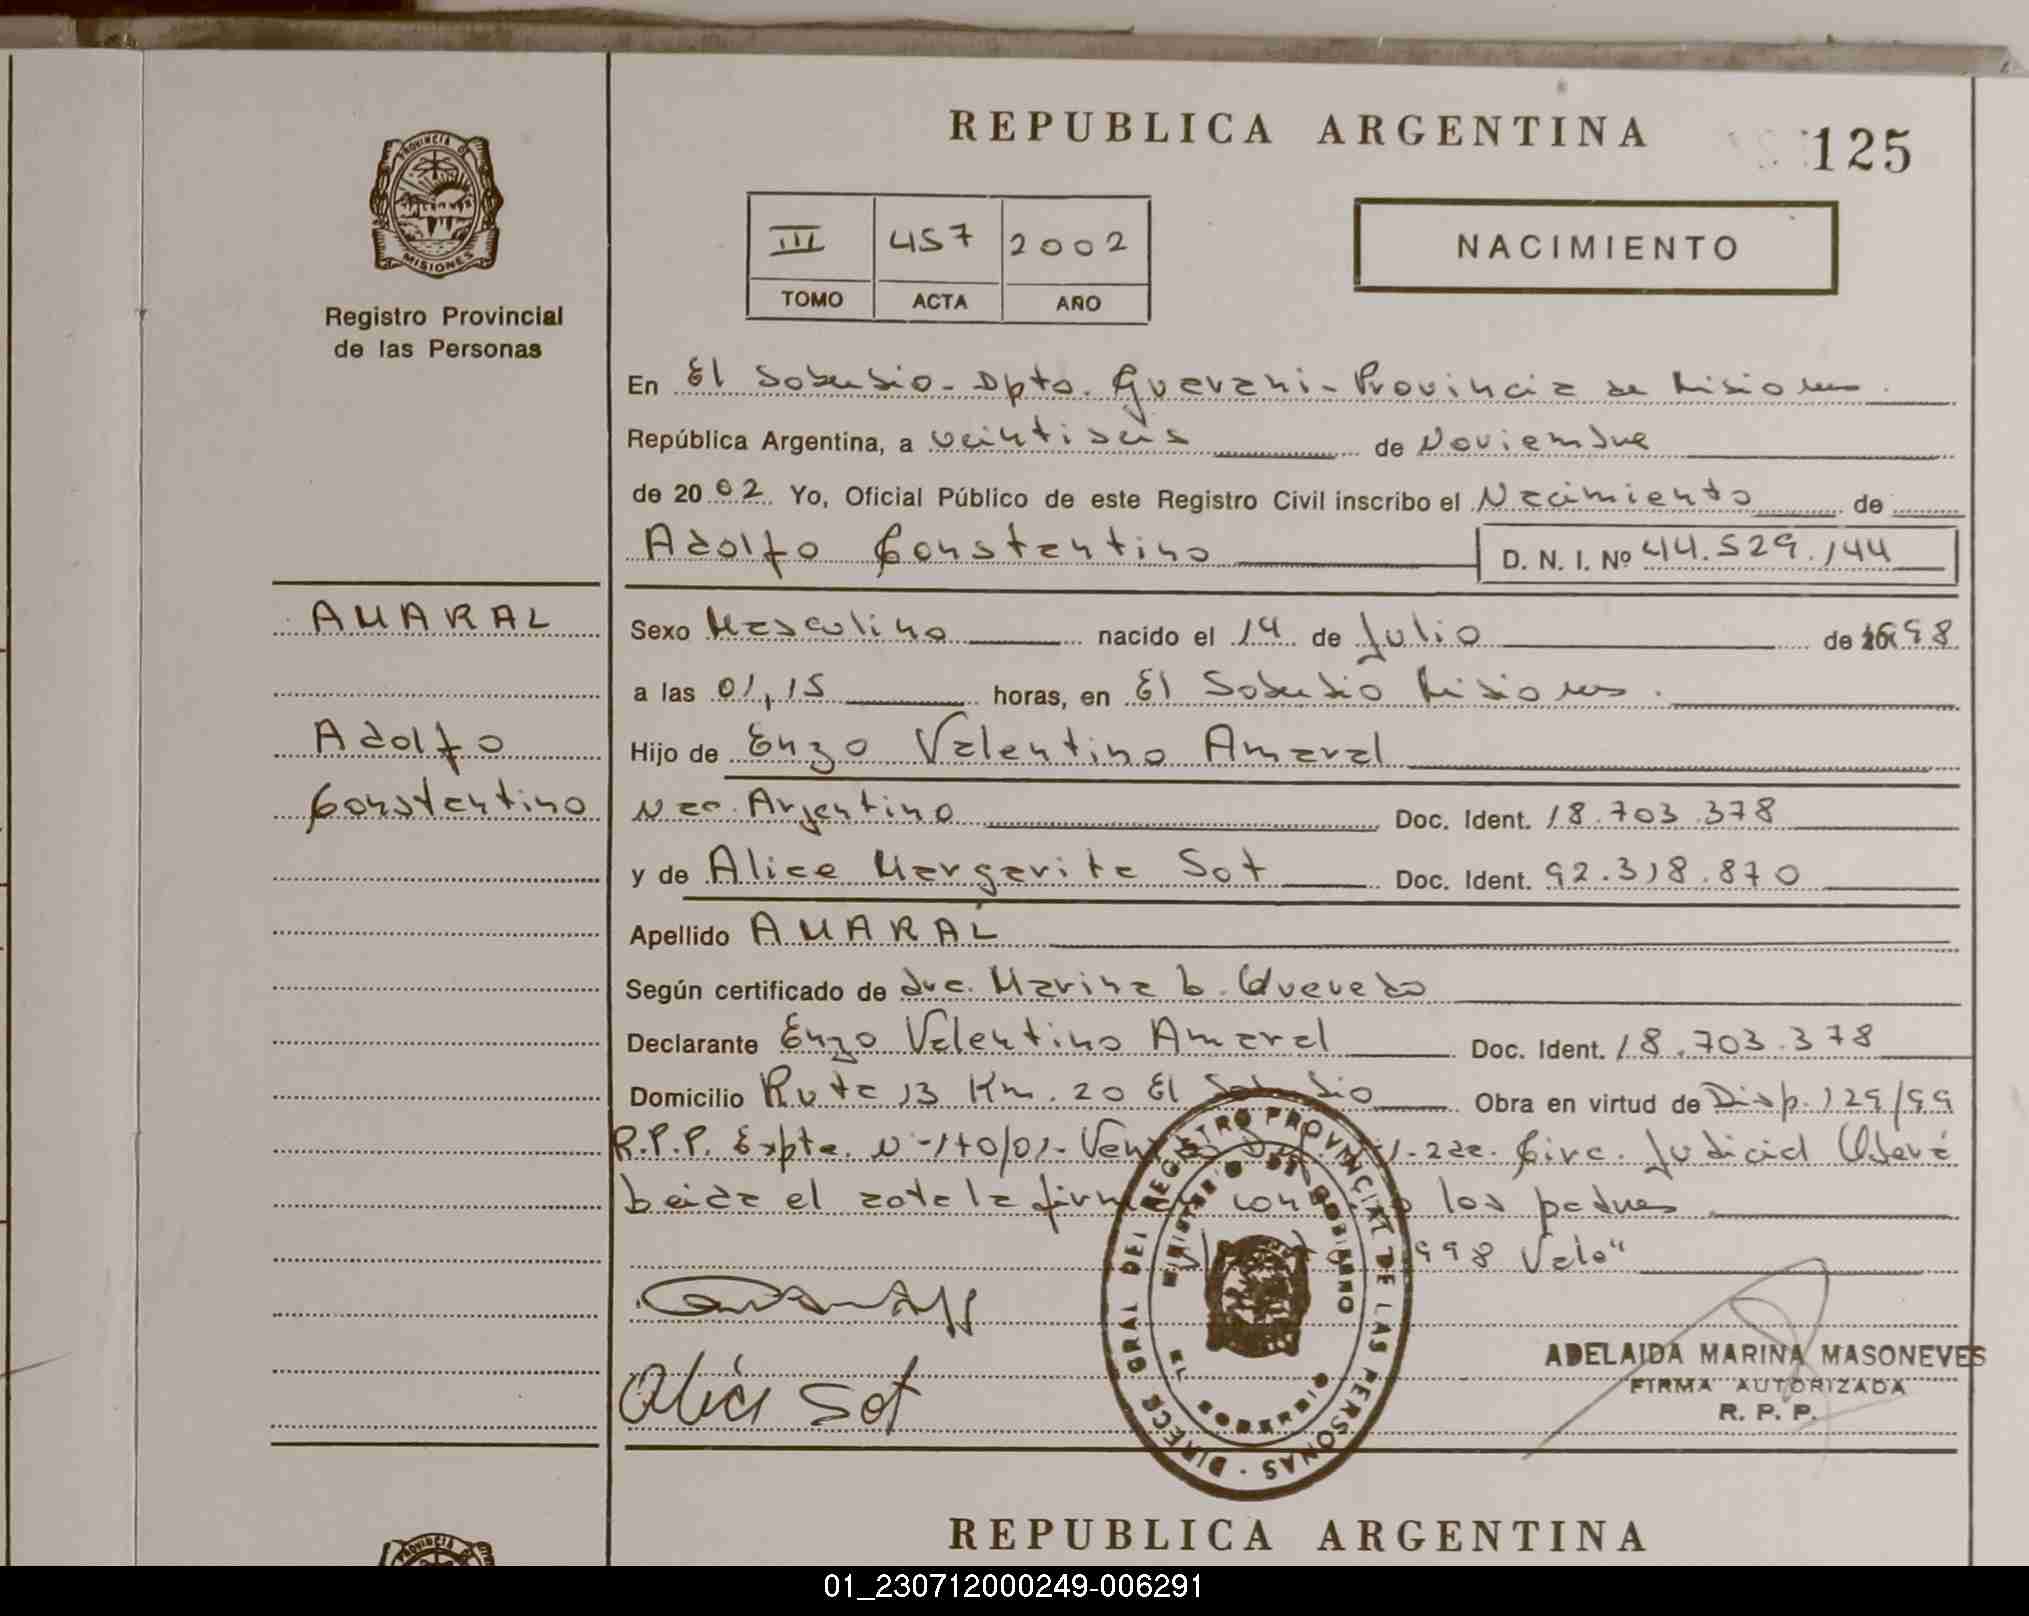 REPUBLICA ARGENTINA
125
PROVINCIA DE
MISIONES
Registro Provincial
de las Personas
III 457 2002
TOMO ACTA AÑO
NACIMIENTO
En El Soberbio - Dpto. Guarani - Provincia de Misiones.
República Argentina, a veintiseis de Noviembre
de 2002 Yo, Oficial Público de este Registro Civil inscribo el Nacimiento de
Adolfo Constantino D. N. I. Nº 44.529.144
AMARAL
Sexo Masculino nacido el 14 de Julio de 1998
a las 01,15 horas, en El Soberbio Misiones.
Adolfo
Hijo de Enzo Valentino Amaral
Constantino
Nac. Argentino Doc. Ident. 18.703.378
y de Alice Margarita Sot Doc. Ident. 92.318.870
Apellido AMARAL
Según certificado de dra. Marina b. Quevedo
Declarante Enzo Valentino Amaral Doc. Ident. 18.703.378
Domicilio Ruta 13 Km. 20 El Soberbio Obra en virtud de Disp. 129/99
R.P.P. Expte. Nº 170/01 - 2da. Circ. Judicial Oberá
Leída el acta la firman los padres
998 Vale"
Alice Sot
DIRECC GRAL DEL REGISTRO PROVINCIAL DE LAS PERSONAS
MINISTERIO DE GOBIERNO
EL SOBERBIO
ADELAIDA MARINA MASONEVES
FIRMA AUTORIZADA
R. P. P.
REPUBLICA ARGENTINA
PROVINCIA DE
01_230712000249-006291